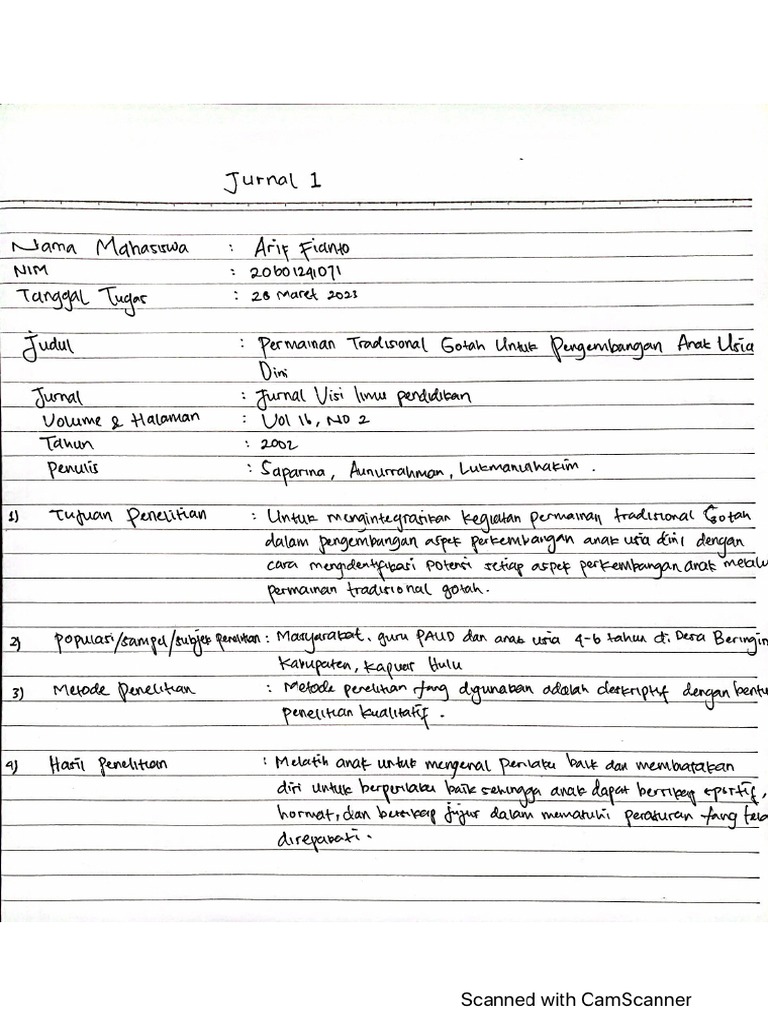 Jurnal 1
Nama Mahasiswa : Arif Fianto
NIM : 20601241071
Tanggal Tugas : 28 Maret 2023
Judul : Permainan Tradisional Gotah Untuk Pengembangan Anak Usia
Dini
Jurnal : Jurnal Visi Ilmu pendidikan
Volume & Halaman : Vol 16, NO 2
Tahun : 2002
Penulis : Saparina, Aunurrahman, Lukmanulhakim.
1) Tujuan Penelitian : Untuk mengintegrasikan kegiatan permainan tradisional Gotah
dalam pengembangan aspek perkembangan anak usia dini dengan
cara mengidentifikasi potensi setiap aspek perkembangan anak melalu
permainan tradisional gotah.
2) Populasi/sampel/subjek penelitian : Masyarakat, guru PAUD dan anak usia 4-6 tahun di Desa Beringin
Kabupaten, Kapuas Hulu
3) Metode Penelitian : Metode penelitian yang digunakan adalah deskriptif dengan bentu
penelitian kualitatif.
4) Hasil Penelitian : Melatih anak untuk mengenal perilaku baik dan membiasakan
diri untuk berperilaku baik sehingga anak dapat bersikap sportif,
hormat, dan bersikap jujur dalam mematuhi peraturan yang tela
disepakati.
Scanned with CamScanner